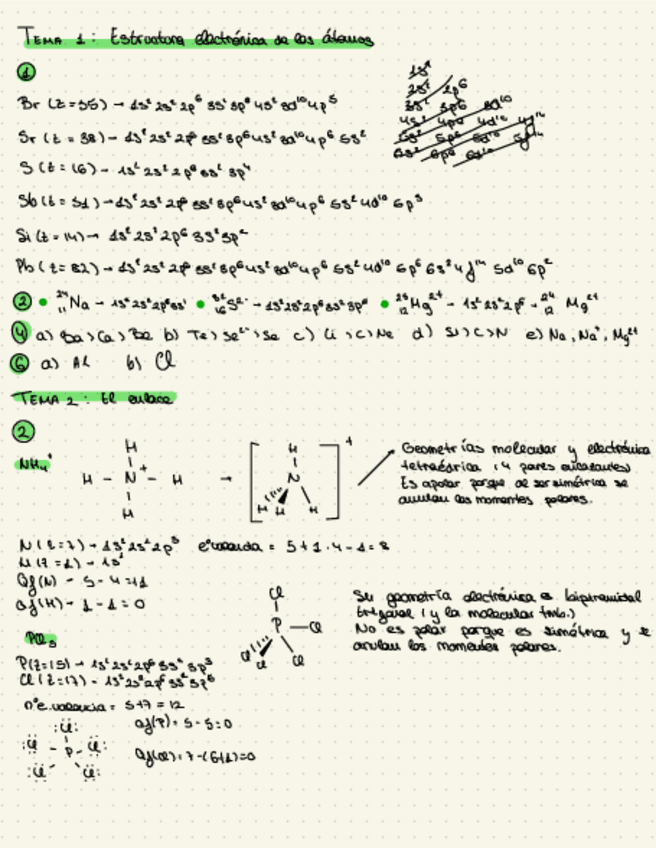 TEMA 1: Estructura electrónica de los átomos
①
1s²
2s² 2p⁶
3s² 3p⁶ 3d¹⁰
4s² 4p⁶ 4d¹⁰ 4f¹⁴
5s² 5p⁶ 5d¹⁰ 5f¹⁴
6s² 6p⁶ 6d¹⁰
Br (z=35) → 1s² 2s² 2p⁶ 3s² 3p⁶ 4s² 3d¹⁰ 4p⁵
Sr (z=38) → 1s² 2s² 2p⁶ 3s² 3p⁶ 4s² 3d¹⁰ 4p⁶ 5s²
S (z=16) → 1s² 2s² 2p⁶ 3s² 3p⁴
Sb (z=51) → 1s² 2s² 2p⁶ 3s² 3p⁶ 4s² 3d¹⁰ 4p⁶ 5s² 4d¹⁰ 5p³
Si (z=14) → 1s² 2s² 2p⁶ 3s² 3p²
Pb (z=82) → 1s² 2s² 2p⁶ 3s² 3p⁶ 4s² 3d¹⁰ 4p⁶ 5s² 4d¹⁰ 5p⁶ 6s² 4f¹⁴ 5d¹⁰ 6p²
② • ₁₁Na → 1s² 2s² 2p⁶ 3s¹ • ³²₁₆S²⁻ → 1s² 2s² 2p⁶ 3s² 3p⁶ • ₁₂Mg²⁺ → 1s² 2s² 2p⁶ → ²⁴₁₂Mg²⁺
④ a) Ba > Ca > Be b) Te > Se²⁻ > Se c) Li > C > Ne d) Si > C > N e) Na, Na⁺, Mg²⁺
⑥ a) Al b) Cl
TEMA 2: El enlace
②
NH₄⁺
H
H - N⁺ - H → +
H
H
N
H H H
Geometrías molecular y electrónica
tetraédrica (4 pares enlazantes)
Es apolar porque al ser simétrica se
anulan los momentos polares.
N (z=7) → 1s² 2s² 2p³ e⁻valencia = 5 + 1 · 4 - 1 = 8
H (z=1) → 1s¹
Qf(N) → 5 - 4 = +1
Qf(H) → 1 - 1 = 0
Cl
P — Cl
Cl Cl Cl
Su geometría electrónica es bipiramidal
trigonal (y la molecular tmb.)
No es polar porque es simétrica y se
anulan los momentos polares.
PCl₅
P (z=15) → 1s² 2s² 2p⁶ 3s² 3p³
Cl (z=17) → 1s² 2s² 2p⁶ 3s² 3p⁵
nº e. valencia = 5+7 = 12
Qf(P) = 5 - 5 = 0
Qf(Cl) = 7 - (6+1) = 0
Cl
Cl - P - Cl
Cl Cl